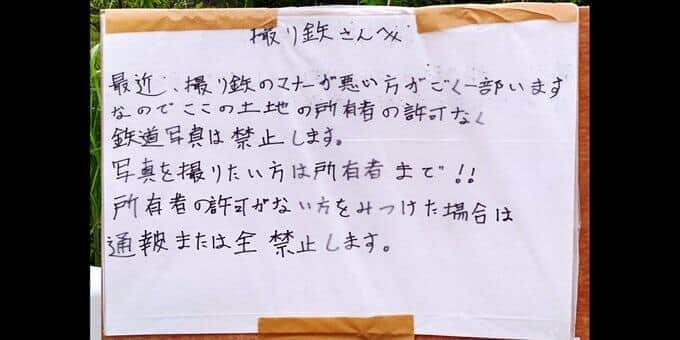 撮り鉄さんへ〃
最近、撮り鉄のマナーが悪い方がごく一部います
なのでここの土地の所有者の許可なく
鉄道写真は禁止します。
写真を撮りたい方は所有者まで!!
所有者の許可がない方をみつけた場合は
通報または全禁止します。